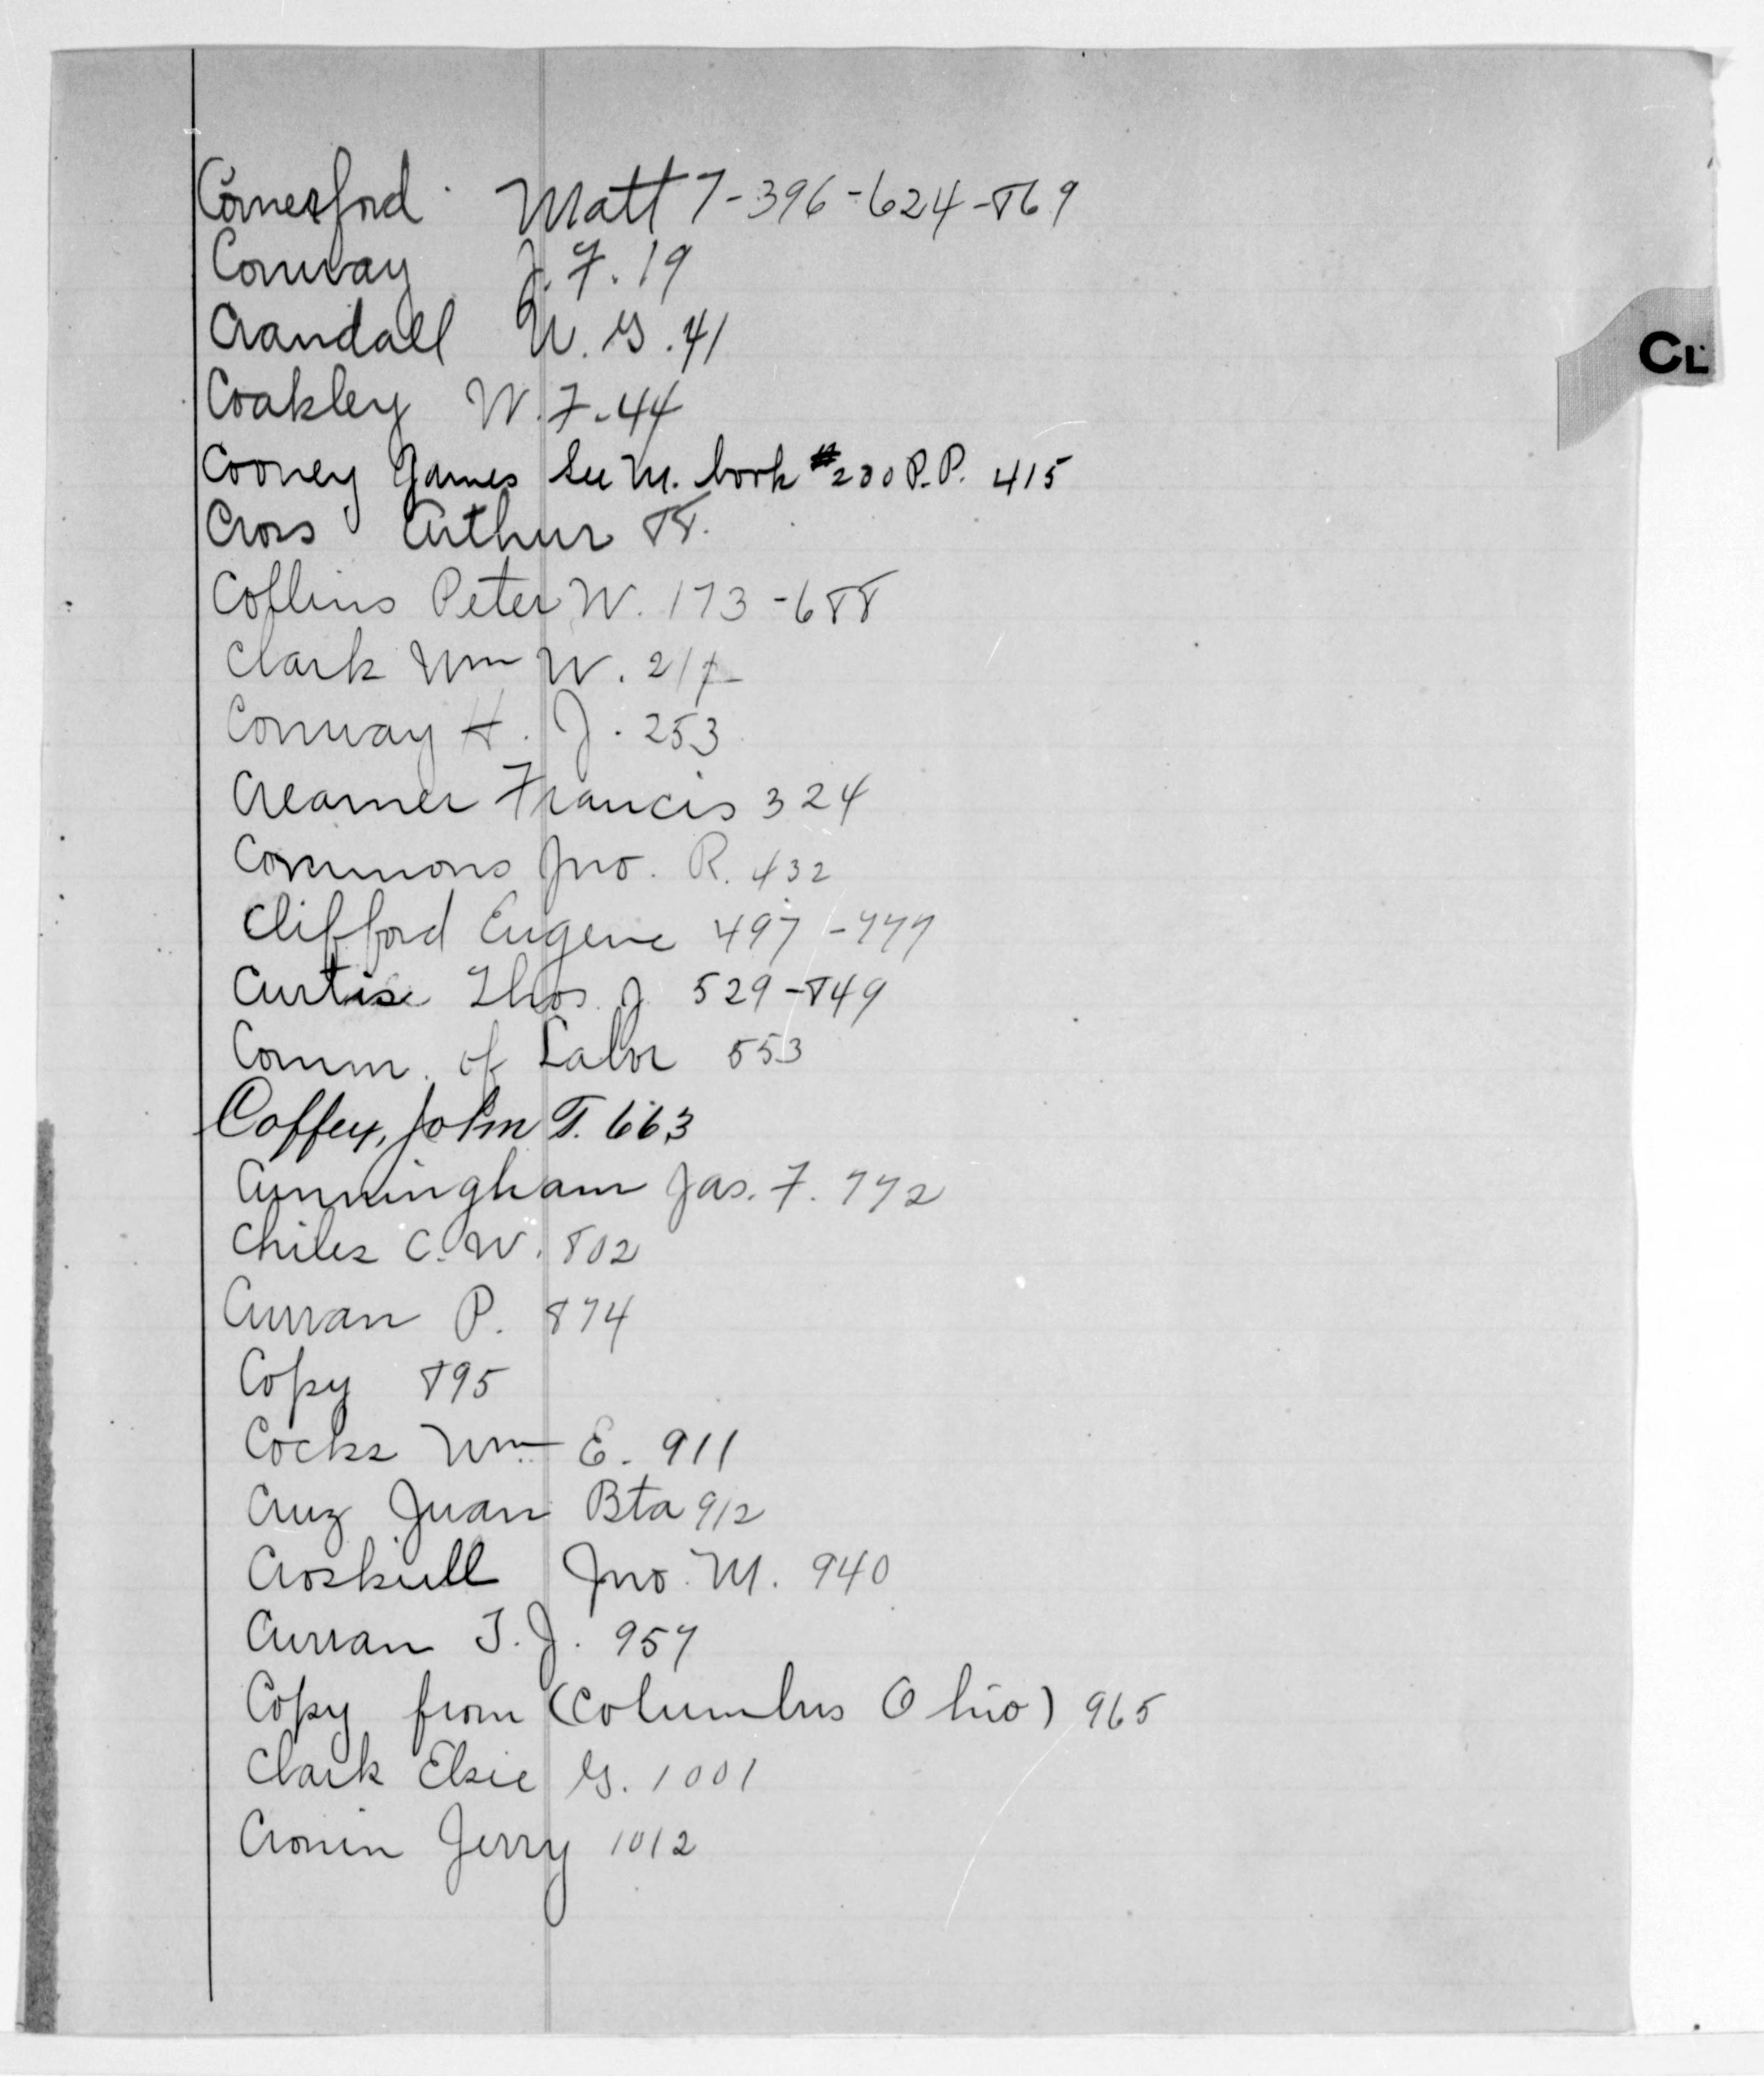 Comerford Matt 7-396-624-869
Conway J. F. 19
Crandall W. G. 41
CL
Coakley W. F. 44
Cooney James See M. book #200 P.P. 415
Cross Arthur 88.
Collins Peter W. 173-688
Clark Wm W. 217
Conway H. J. 253
Creamer Francis 324
Commons Jno. R. 432
Clifford Eugene 497-777
Curtis Thos. J 529-849
Comm. of Labor 553
Coffey, John T. 663
Cunningham Jas. F. 772
Chiles C. W. 802
Curran P. 874
Copy 895
Cocks Wm E. 911
Cruz Juan Bta 912
Croskull Jno. M. 940
Curran T. J. 957
Copy from (Columbus Ohio) 965
Clark Elsie G. 1001
Cronin Jerry 1012